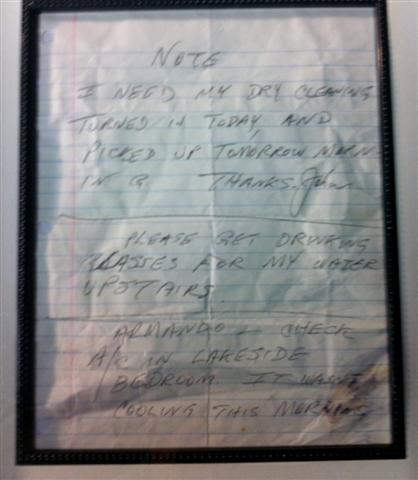 NOTE
I NEED MY DRY CLEANING
TURNED IN TODAY, AND
PICKED UP TOMORROW MORN
IN G. THANKS. John
PLEASE GET DRINKING
GLASSES FOR MY WATER
UPSTAIRS.
ARMANDO - CHECK
A/C IN LAKESIDE
BEDROOM. IT WASN'T
COOLING THIS MORNING